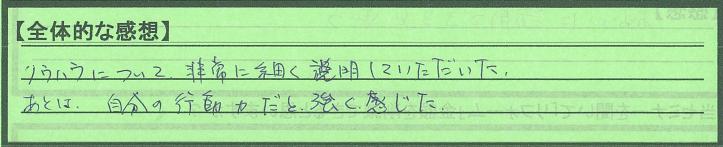 【全体的な感想】
ノウハウについて、非常に細く説明していただいた。
あとは、自分の行動力だと、強く感じた。